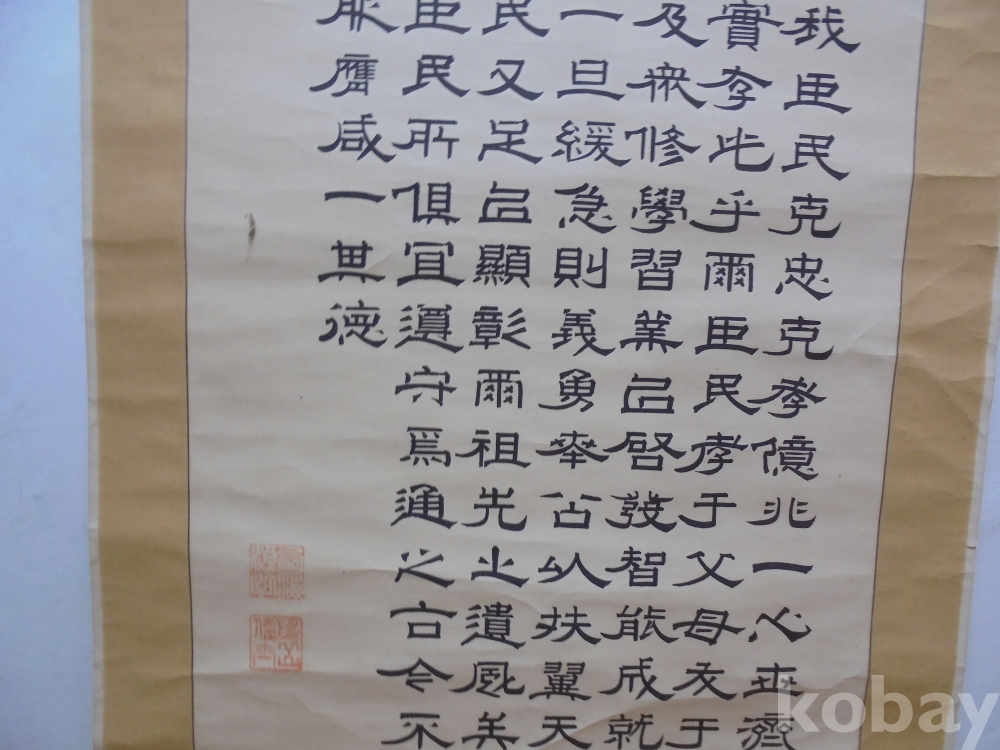 我臣民克忠克孝億兆一心世濟
實存此乎爾臣民孝于父母友于
及衆修學習業以啓發智能成就
一旦緩急則義勇奉公以扶翼天
民又足以顯彰爾祖先之遺風矣
臣民所俱宜遵守焉通之古今不
服膺咸一其德
kobay